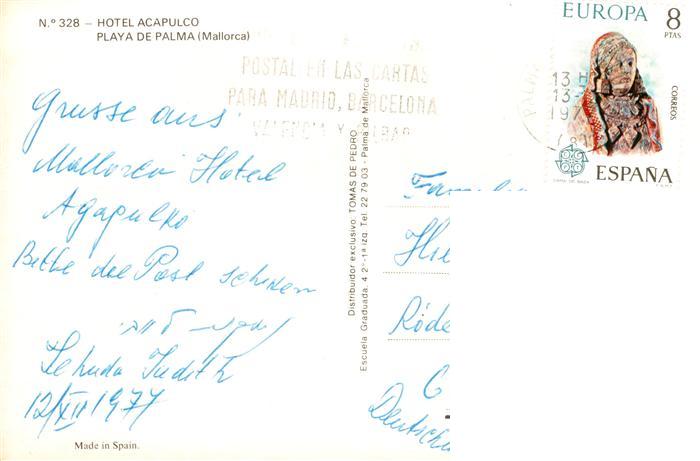 N.º 328 - HOTEL ACAPULCO
PLAYA DE PALMA (Mallorca)
Grusse aus
Mallorca Hotel
Agapulko
Bitte die Post schicken
Jehuda Judith
12/XII 1977
Made in Spain.
Distribuidor exclusivo: TOMAS DE PEDRO
Escuela Graduada, 4 2º-1ª izq. Tel. 22 79 03 - Palma de Mallorca
POSTAL EN LAS CARTAS
PARA MADRID, BARCELONA
VALENCIA Y BILBAO
EUROPA 8
PTAS
CORREOS
ESPAÑA
13 H
13-
197
Familie
Röde
Deutsch